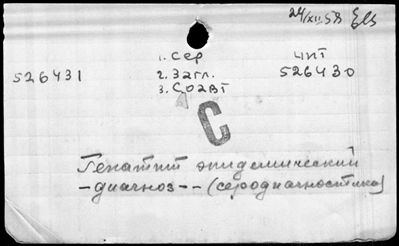 24/XII.58
1. Сер ЧПТ
526431 2. Загл. 526430
3. СО2ВТ
С
Гепатит эпидемический
-диагноз-- (серодиагностика)